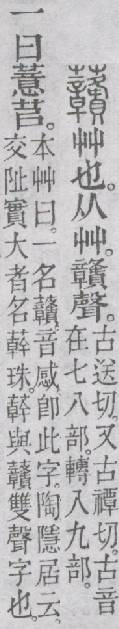 䕲艸也。从艸。贛聲。
古送切。又古禫切。古音
在七八部。轉入九部。
一曰薏苢。
本艸曰。一名贛。音感。卽此字。陶隱居云。
交阯實大者名𦼮珠。𦼮與贛雙聲字也。